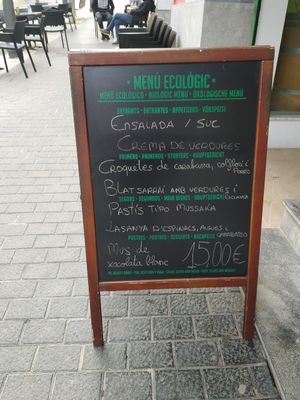 · MENÚ ECOLÒGIC ·
MENÚ ECOLÓGICO · BIOLOGIC MENU · ÖKOLOGISCHE MENÜ
ENTRANTS · ENTRANTES · APPETIZERS · VORSPEISE
ENSALADA / SUC
CREMA DE VERDURES
PRIMERS · PRIMEROS · STARTERS · HAUPTGERICHT
Croquetes de carabassa, colflori i
PORRO
BLAT SARRAÍ AMB VERDURES i
SEGONS · SEGUNDOS · MAIN DISHES · HAUPTGERICHT
PASTÍS TIPO MUSSAKA
LASANYA D'ESPINACS, ALGUES i
CARABASSO
POSTRES · POSTRES · DESSERTS · NACHSPEISE
Mus de
xocolata blanc
15,00€